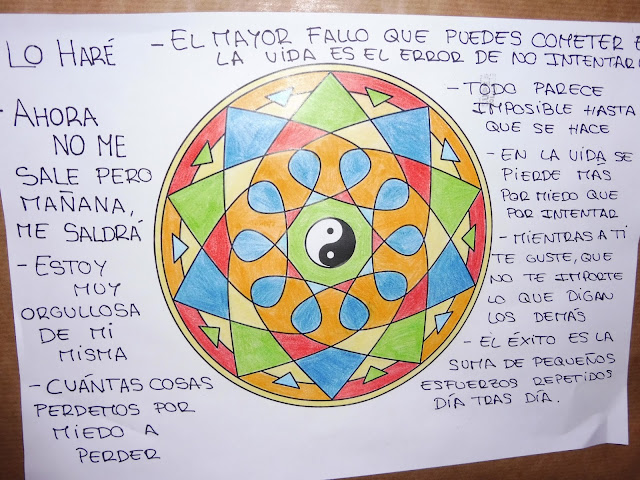 LO HARÉ
- AHORA
NO ME
SALE PERO
MAÑANA,
ME SALDRÁ
- ESTOY
MUY
ORGULLOSA
DE MI
MISMA
- CUÁNTAS COSAS
PERDEMOS POR
MIEDO A
PERDER
- EL MAYOR FALLO QUE PUEDES COMETER
LA VIDA ES EL ERROR DE NO INTENTAR
- TODO PARECE
IMPOSIBLE HASTA
QUE SE HACE
- EN LA VIDA SE
PIERDE MAS
POR MIEDO QUE
POR INTENTAR
- MIENTRAS A TÍ
TE GUSTE, QUE
NO TE IMPORTE
LO QUE DIGAN
LOS DEMÁS
- EL ÉXITO ES LA
SUMA DE PEQUEÑOS
ESFUERZOS REPETIDOS
DÍA TRAS DÍA.